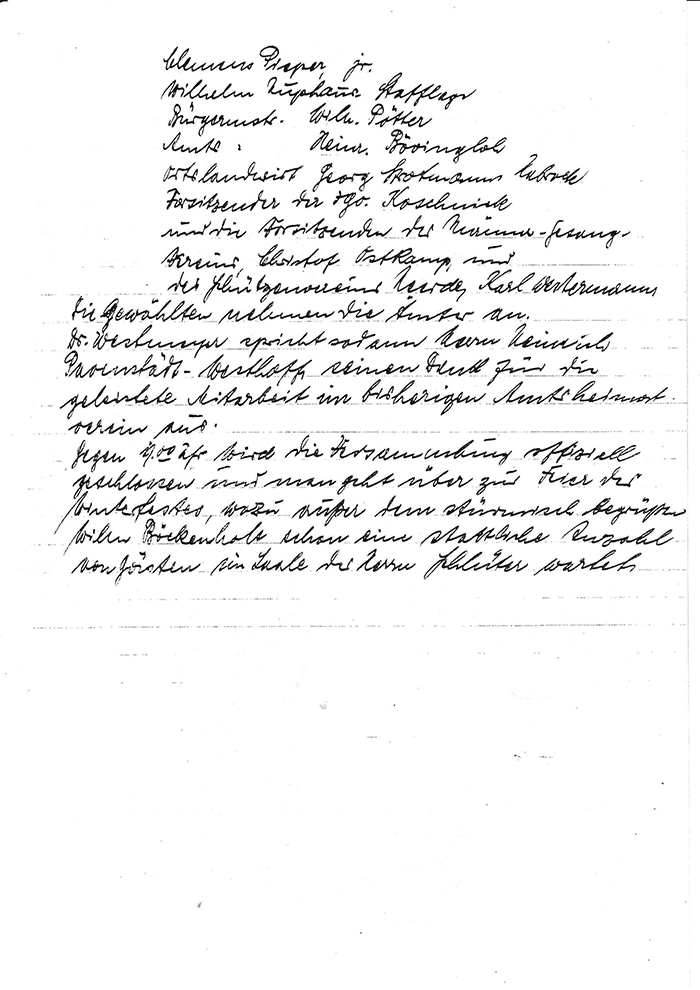 Clemens Pieper, jr.
Wilhelm Zuphaus Stafflage
Bürgermstr. Wilh. Pötter
Amts : Heinr. Bövingloh
Ortslandwirt Georg Strotmanns
Vorsitzender der Koschnick
und die Vorsitzenden des Männer-Gesang-
Vereins, Christof Ostkamp, und
des Schützenvereins Karl Westermann
Die Gewählten nehmen die Ämter an.
Dr. Westmeyer spricht sodann Herrn Heinrich
Pavenstädt-Westhoff seinen Dank für die
geleistete Mitarbeit im bisherigen Amtsheimat-
verein aus.
Gegen 19.00 Uhr wird die Versammlung offiziell
geschlossen und man geht über zur Feier des
Winterfestes, wozu außer dem stürmisch begrüßten
Wilm Böckenholt schon eine stattliche Anzahl
von Gästen im Saale des Herrn Schlüter wartet.